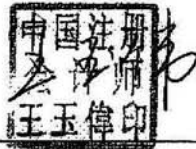 中国注册
会计师
王玉伟印